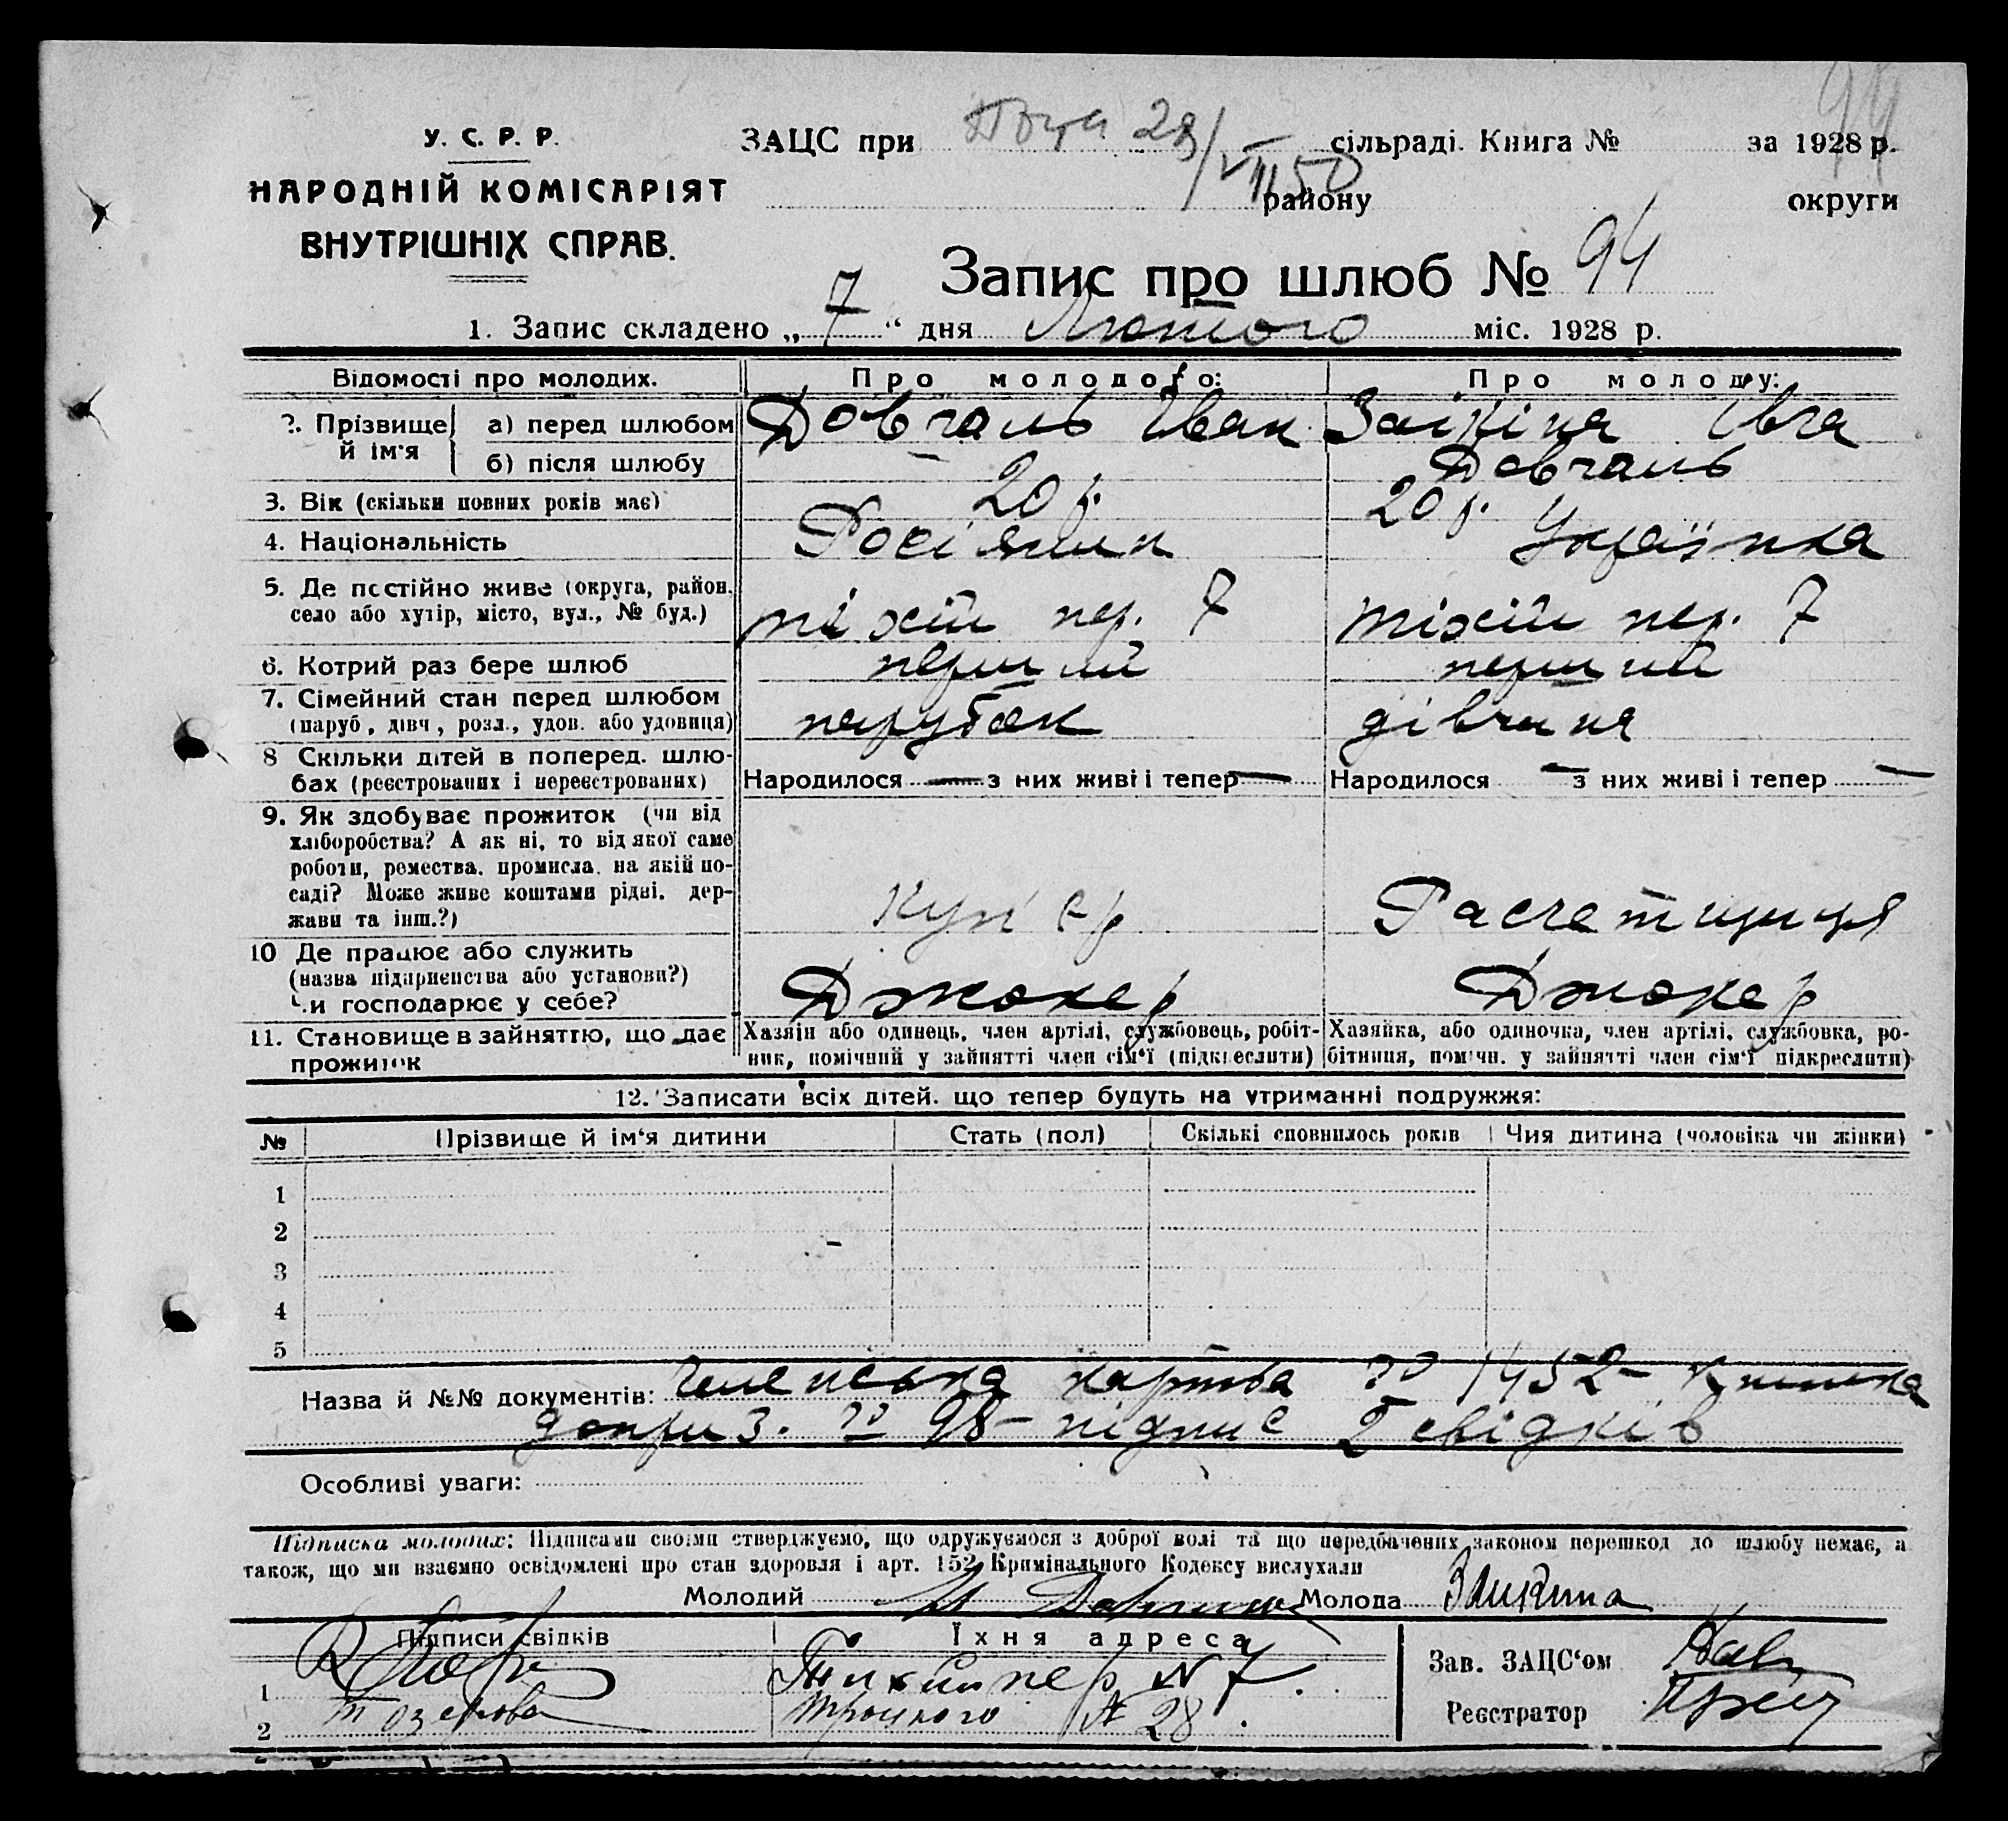 99
У. С. Р. Р.
НАРОДНІЙ КОМІСАРІЯТ
ВНУТРІШНІХ СПРАВ.
ЗАЦС при 28/VIII 50 сільраді. Книга № за 1928 р.
району округи
Запис про шлюб № 94
1. Запис складено „ 7 “ дня Лютого міс. 1928 р.
Відомості про молодих. Про молодого: Про молоду:
2. Прізвище й ім'я а) перед шлюбом Довгаль Іван Заікіна Євга
б) після шлюбу — Довгаль
3. Вік (скільки повних років має) 20 р. 20 р.
4. Національність Росіянин Українка
5. Де постійно живе (округа, район,
село або хутір, місто, вул., № буд.) тіхій пер. 7 тіхій пер. 7
6. Котрий раз бере шлюб перший перший
7. Сімейний стан перед шлюбом
(паруб., дівч., розл., удов. або удовиця) парубок дівчина
8 Скільки дітей в поперед. шлю-
бах (реєстрованих і нереєстрованих) Народилося — з них живі і тепер — Народилося — з них живі і тепер —
9. Як здобуває прожиток (чи від
хліборобства? А як ні, то від якої саме
роботи, ремества, промисла, на якій по-
саді? Може живе коштами рідні, дер-
жави та інш.?) Кур'єр Расчетщиця
10 Де працює або служить
(назва підприємства або установи?)
Чи господарює у себе? Джокер Джокер
11. Становище в зайняттю, що дає
прожиток
Хазяїн або одинець, член артілі, службовець, робіт-
ник, помічний у зайнятті член сім'ї (підкреслити)
Хазяйка, або одиночка, член артілі, службовка, ро-
бітниця, помічн. у зайнятті член сім'ї підкреслити)
12. Записати всіх дітей, що тепер будуть на утриманні подружжя:
№ Прізвище й ім'я дитини Стать (пол) Скількі сповнилось років Чия дитина (чоловіка чи жінки)
1
2
3
4
5
Назва й №№ документів: Членська картка № 1452 — Книжка
доприз. № 98 — підпис 2 свідків
Особливі уваги:
Підписка молодих: Підписами своїми стверджуємо, що одружуємося з доброї волі та що передбачених законом перешкод до шлюбу немає, а
також, що ми взаємно освідомлені про стан здоровля і арт. 152 Кримінального Кодексу вислухали
Молодий Молода Заикина
Підписи свідків Їхня адреса
1 Тихий пер № 7.
2 Троцкого № 28.
Зав. ЗАЦС'ом
Реєстратор